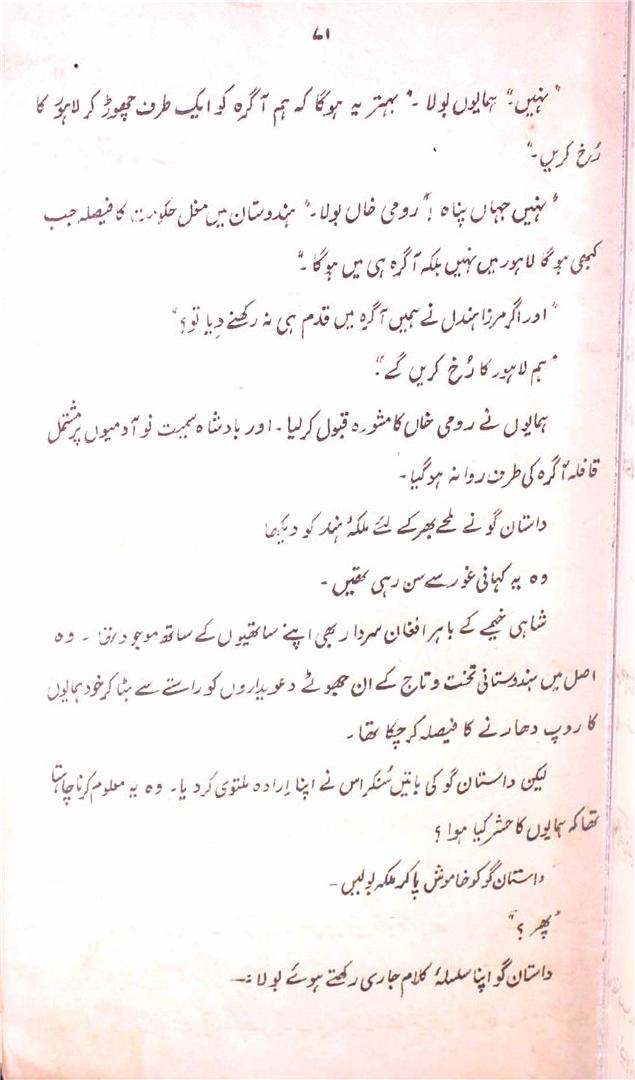 ۷۱
"نہیں۔" ہمایوں بولا۔ "بہتر یہ ہوگا کہ ہم آگرہ کو ایک طرف چھوڑ کر لاہور کا
رُخ کریں۔"
"نہیں جہاں پناہ!" رومی خاں بولا۔ "ہندوستان میں مغل حکومت کا فیصلہ جب
کبھی ہوگا لاہور میں نہیں بلکہ آگرہ ہی میں ہوگا۔"
"اور اگر مرزا ہندل نے ہمیں آگرہ میں قدم ہی نہ رکھنے دیا تو؟"
"ہم لاہور کا رُخ کریں گے"۔
ہمایوں نے رومی خاں کا مشورہ قبول کرلیا۔ اور بادشاہ سمیت نو آدمیوں پر مشتمل
قافلہ آگرہ کی طرف روانہ ہوگیا۔
داستان گو نے لمحے بھر کے لئے ملکۂ ہند کو دیکھا
وہ یہ کہانی غور سے سن رہی تھیں۔
شاہی خیمے کے باہر افغان سردار بھی اپنے ساتھیوں کے ساتھ موجود تھا۔ وہ
اصل میں ہندوستانی تخت و تاج کے ان جھوٹے دعویداروں کو راستے سے ہٹا کر خود ہمایوں
کا روپ دھارنے کا فیصلہ کرچکا تھا۔
لیکن داستان گو کی باتیں سُنکر اس نے اپنا اِرادہ ملتوی کردیا۔ وہ یہ معلوم کرنا چاہتا
تھا کہ ہمایوں کا حشر کیا ہوا؟
داستان گو کو خاموش پاکر ملکہ بولیں۔
"پھر؟"
داستان گو اپنا سلسلۂ کلام جاری رکھتے ہوئے بولا:۔